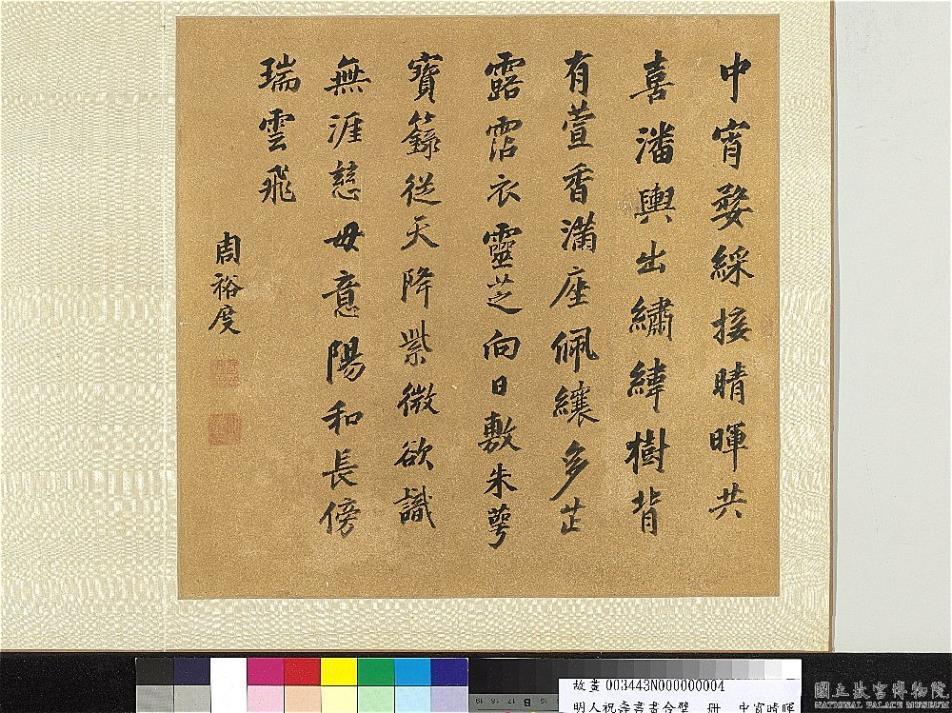 中宵婺綵接晴暉共
喜潘輿出繡幃樹背
有萱香滿座佩纕多芷
露霑衣靈芝向日敷朱萼
寶籙從天降紫微欲識
無涯慈母意陽和長傍
瑞雲飛
周裕度
故畫 003443N000000004
明人祝壽書畫合璧 冊 中宵晴暉
國立故宮博物院
NATIONAL PALACE MUSEUM